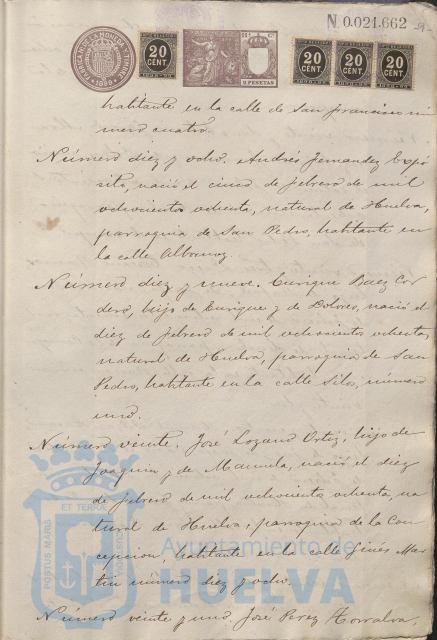 N 0.021.662
FABRICA NAL DE LA MONEDA Y TIMBRE
1899
20
CENT.
11ª Cª
2 PESETAS
20
CENT.
20
CENT.
20
CENT.
habitante en la calle de san francisco nú
mero cuatro.
Número diez y ocho. Andrés Fernandez Expó
sito, nació el cinco de febrero de mil
ochocientos ochenta, natural de Huelva,
parroquia de San Pedro, habitante en
la calle Albornoz.
Número diez y nueve. Enrique Baez Cor
dero, hijo de Enrique y de Dolores, nació el
diez de febrero de mil ochocientos ochenta
natural de Huelva, parroquia de San
Pedro, habitante en la calle Silos, número
uno.
Número veinte. José Lozano Ortiz, hijo de
Joaquin y de Manuela, nació el diez
de febrero de mil ochocientos ochenta, na
tural de Huelva, parroquia de la Con
cepcion, habitante en la calle Ginés Mar
tin número diez y ocho.
Número veinte y uno. José Perez Torralva,
PORTUS MARIS
ET TERRAE
CUSTODIA
Ayuntamiento de
HUELVA